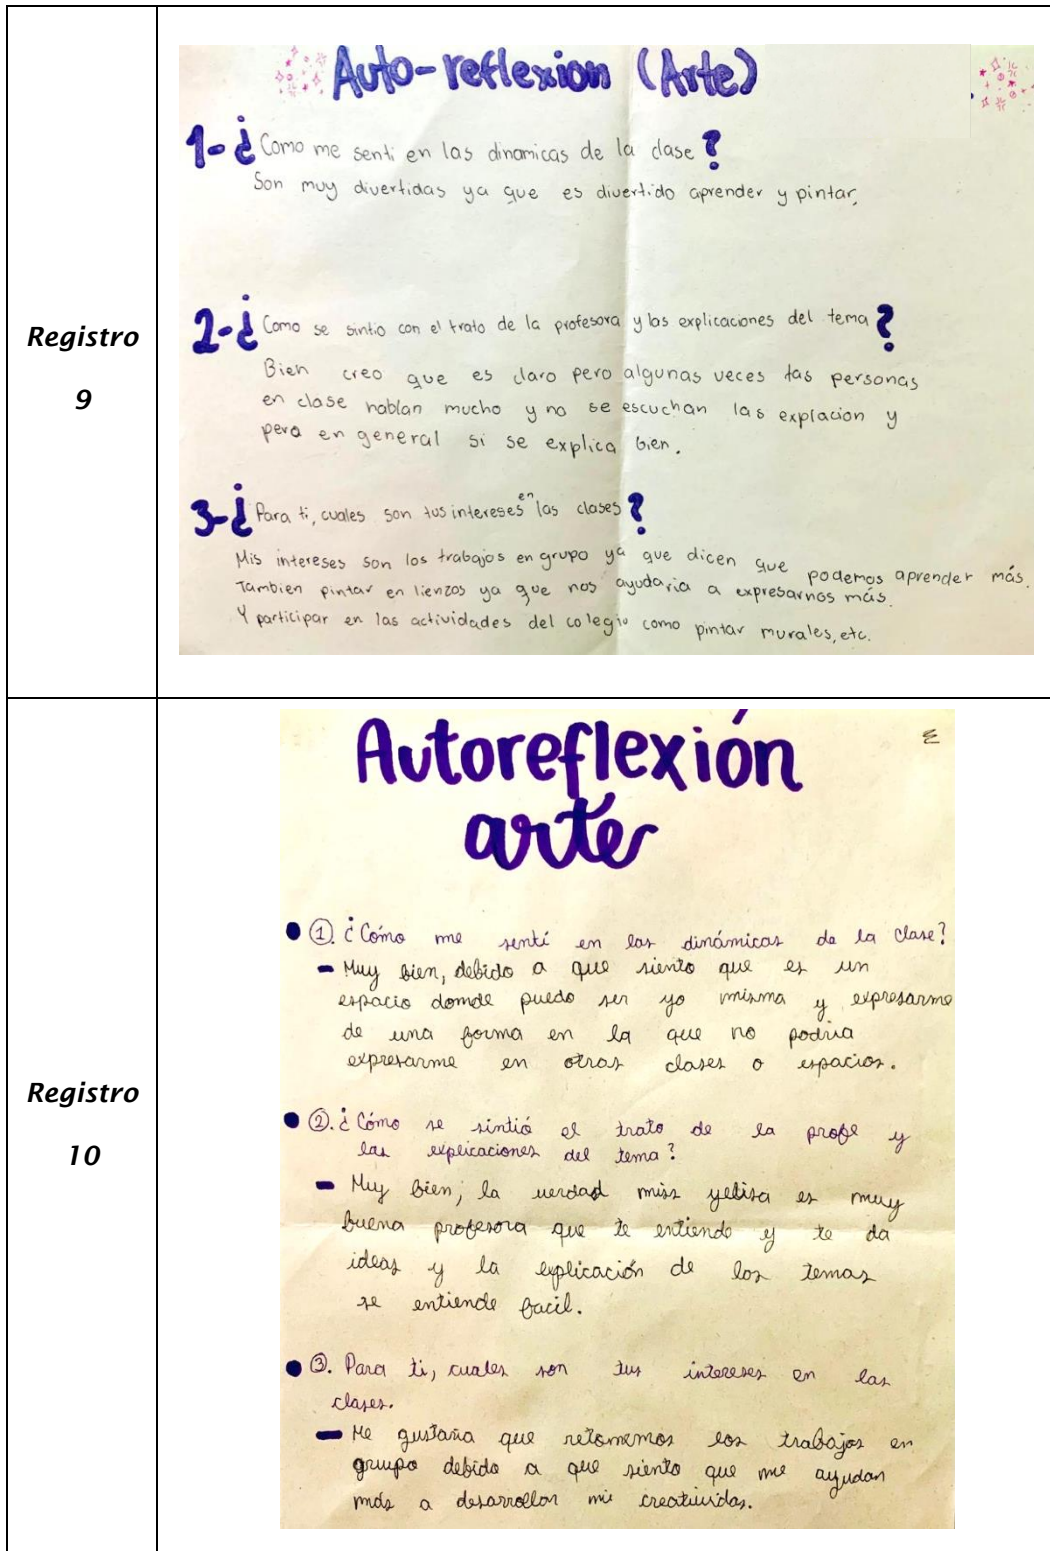 Registro
9
Auto-reflexion (Arte)
1-¿Como me senti en las dinamicas de la clase?
Son muy divertidas ya que es divertido aprender y pintar,
2-¿Como se sintio con el trato de la profesora y las explicaciones del tema?
Bien creo que es claro pero algunas veces las personas
en clase hablan mucho y no se escuchan las explacion y
pero en general si se explica bien.
3-¿Para ti, cuales son tus intereses en las clases?
Mis intereses son los trabajos en grupo ya que dicen que podemos aprender más.
Tambien pintar en lienzos ya que nos ayudaria a expresarnos más.
Y participar en las actividades del colegio como pintar murales, etc.
Registro
10
Autoreflexión
arte
1. ¿Cómo me sentí en las dinámicas de la clase?
- Muy bien, debido a que siento que es un
espacio donde puedo ser yo misma y expresarme
de una forma en la que no podria
expresarme en otras clases o espacios.
2. ¿Cómo se sintió el trato de la profe y
las explicaciones del tema?
- Muy bien, la verdad miss yelisa es muy
buena profesora que te entiende y te da
ideas y la explicación de los temas
se entiende facil.
3. Para ti, cuales son tus intereses en las
clases.
- Me gustaria que retomemos los trabajos en
gruupo debido a que siento que me ayudan
más a desarrollar mi creatividas.